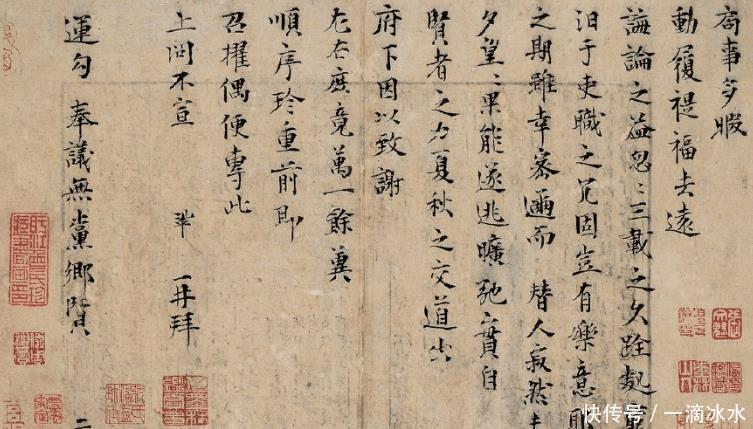 局事多暇
動履禔福去遠
誨論之益忽〻三載之久跧處
汩于吏職之冗固豈有樂意耶
之期雖幸密邇而 替人寂然未
夕望〻果能遂逃曠弛實自
賢者之力夏秋之交道出
府下因以致謝
左右庶竟萬一餘冀
順序珍重前即
召擢偶便專此
上問不宣 鞏 再拜
運勾 奉議無黨鄉賢 二
快传号／一滴冰水